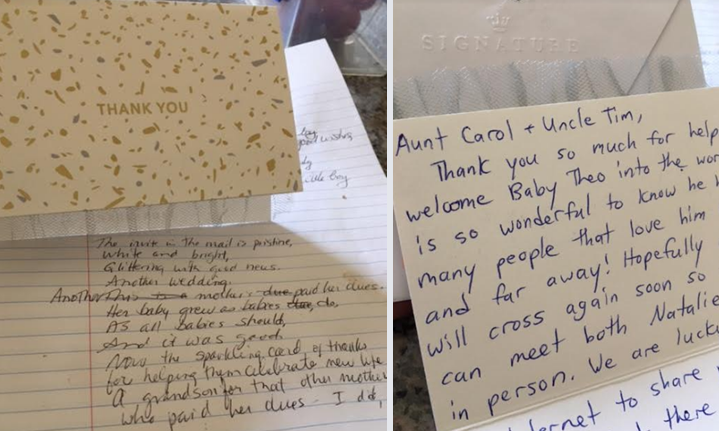 THANK YOU
The invite in the mail is pristine,
White and bright,
Glittering with good news.
Another wedding.
Another a mother paid her dues.
Her baby grew as babies do,
As all babies should,
And it was good
Now the sparkling card of thanks
for helping them celebrate new life
A grandson for that other mother
who paid her dues - I did,
SIGNATURE
Aunt Carol + Uncle Tim,
Thank you so much for help
welcome Baby Theo into the wor
is so wonderful to know he h
many people that love him
and far away! Hopefully
will cross again soon so
can meet both Natalie
in person. We are luck
ternet to share
there